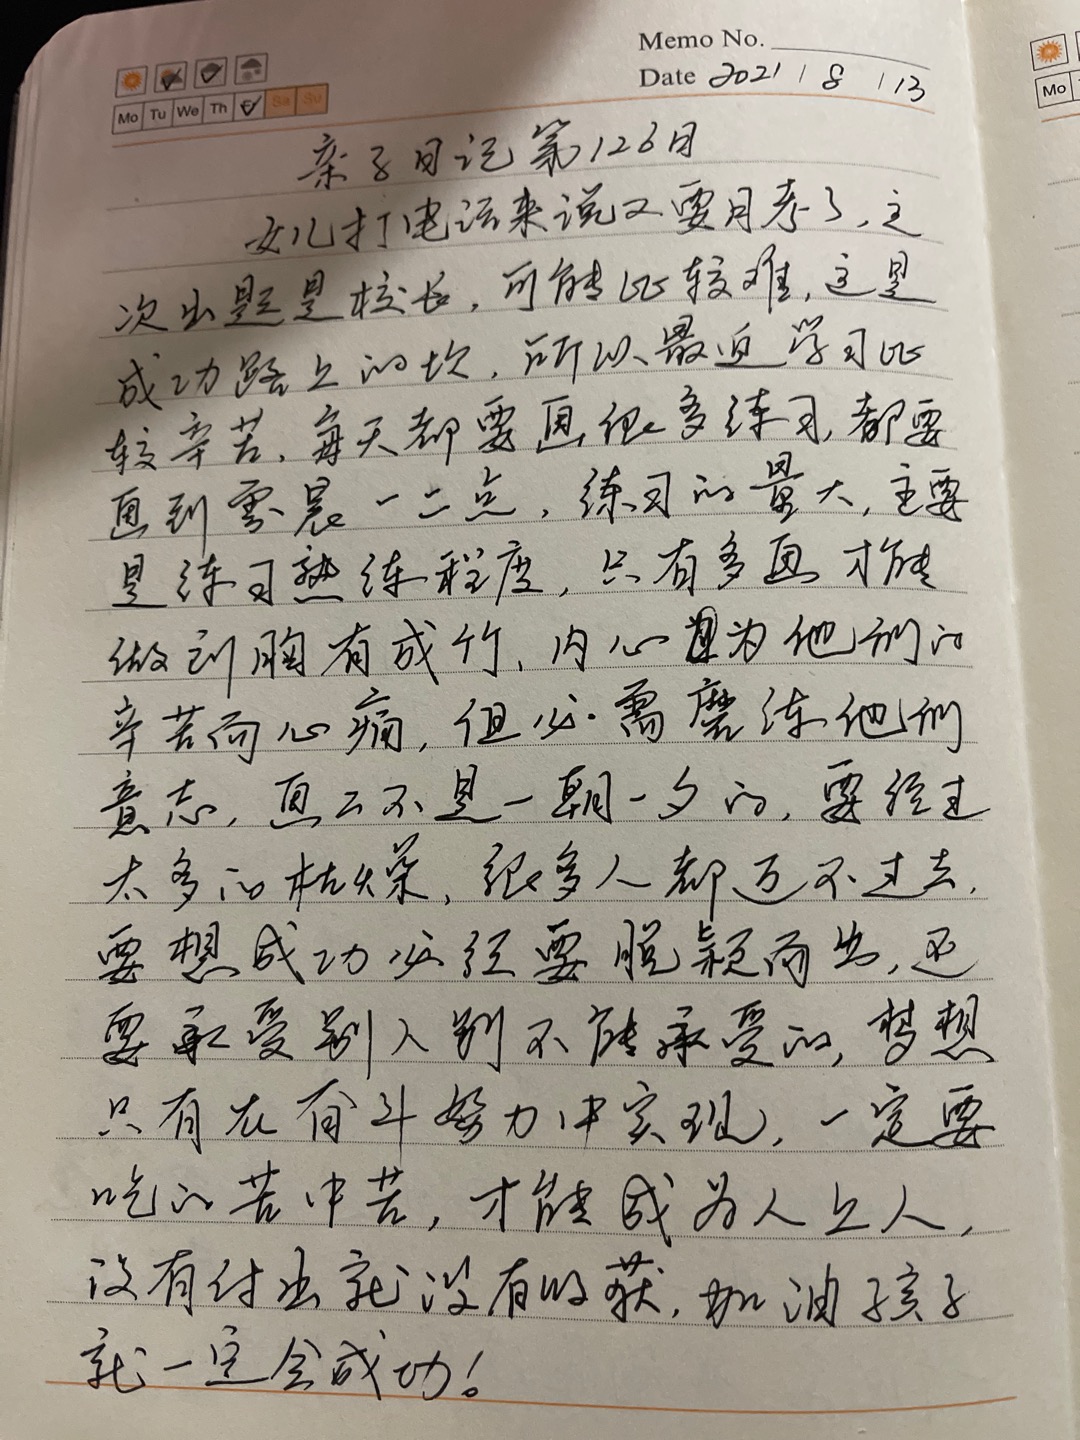 Memo No.
Date 2021 / 8 / 13
Mo Tu We Th Sa Su
Mo
亲子日记第126日
女儿打电话来说又要月考了,这
次出题是校长,可能比较难,这是
成功路上的坎,所以最近学习比
较辛苦,每天都要画很多练习,都要
画到零晨一二点,练习的量大,主要
是练习熟练程度,只有多画才能
做到胸有成竹,内心因为他们的
辛苦而心痛,但必需磨练他们
意志,画工不是一朝一夕的,要经过
太多的枯燥,很多人都迈不过去,
要想成功必须要脱颖而出,还
要承受别人别不能承受的,梦想
只有在奋斗努力中实现,一定要
吃的苦中苦,才能成为人上人,
没有付出就没有收获,加油孩子
就一定会成功!